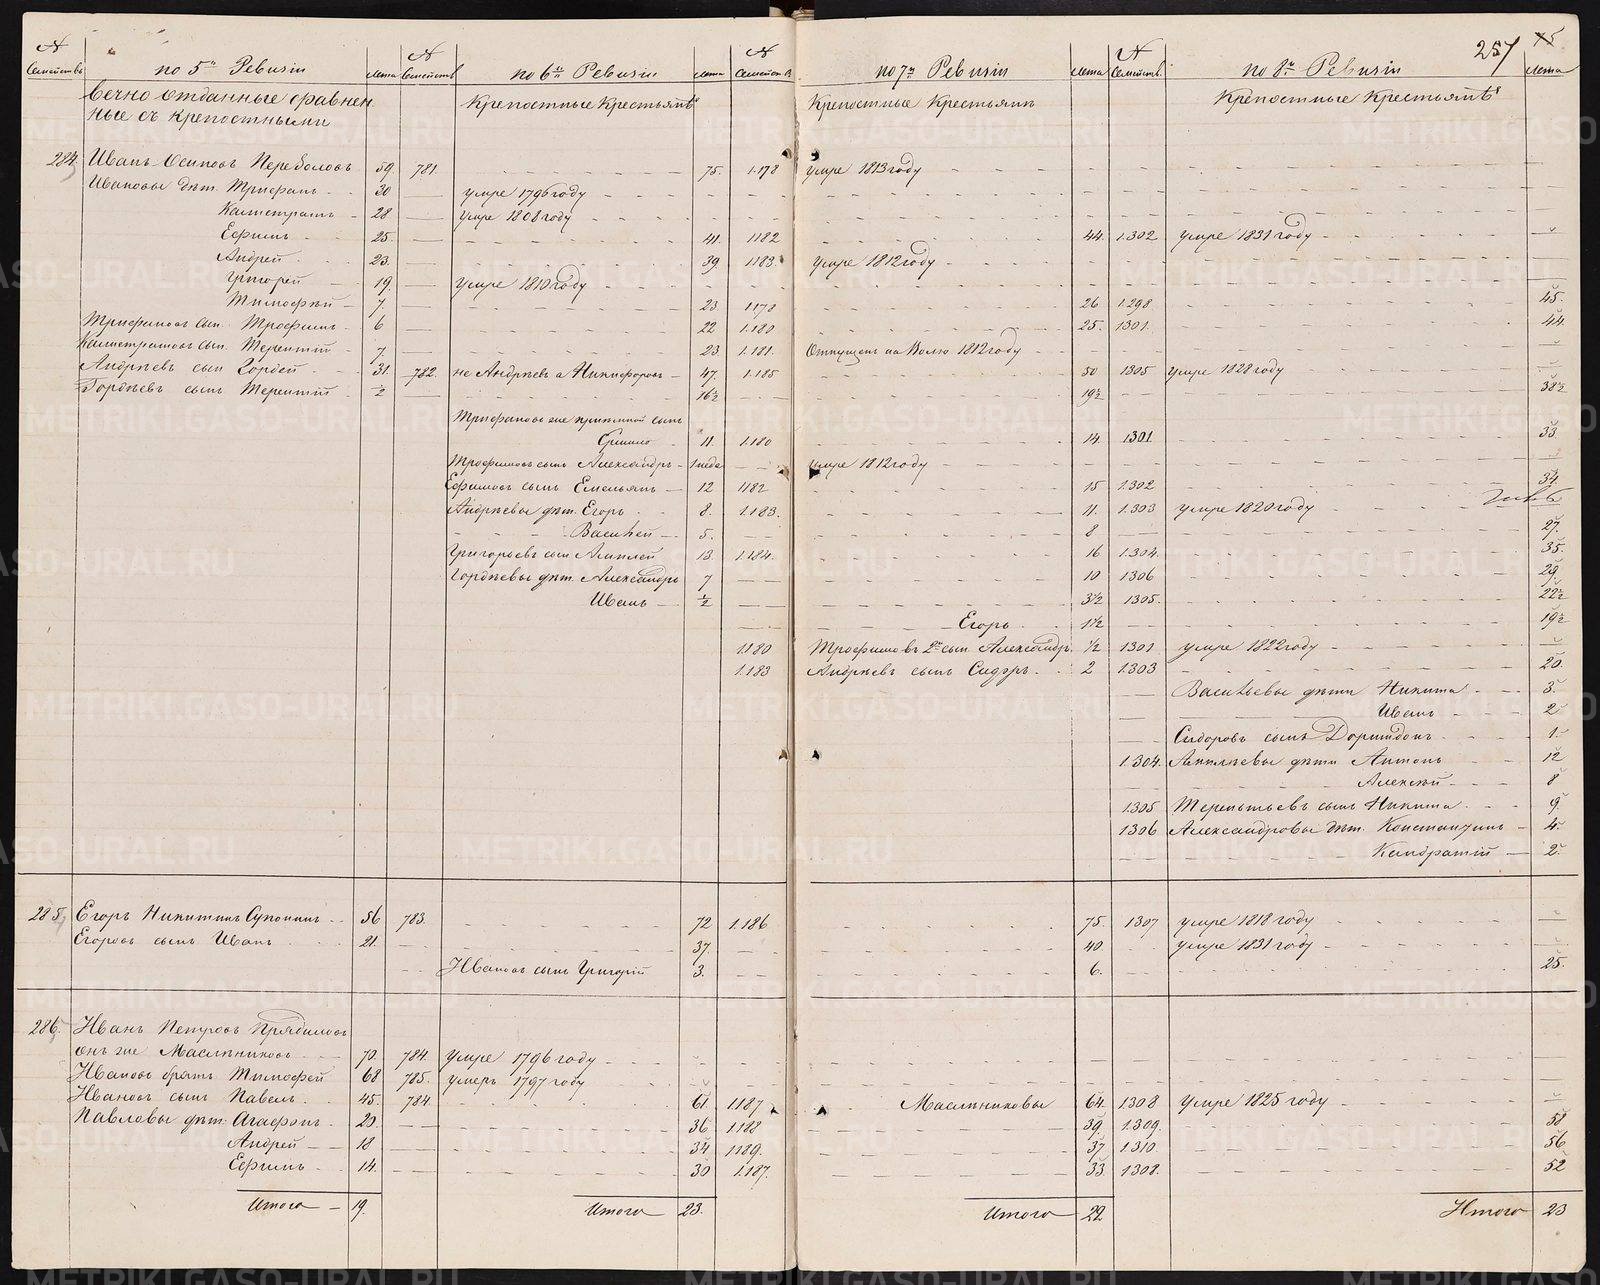 257 75
№ Семействъ по 5й Ревизiи лѣта № Семейств по 6й Ревизiи лѣта № Семейств по 7й Ревизiи лѣта № Семейств. по 8й Ревизiи лѣта
Вечно отданные сравнен Крепостные Крестьянѣ Крепостные Крестьянъ Крепостные Крестьянѣ
ные съ крепостными
284 Иванъ Осиповъ Переваловъ 59. 781. 75. 1178 умре 1813 году
Ивановы дѣт. Трифанъ 30 умре 1796 году
Калистратъ 28 умре 1808 году
Ефимъ 25. 41. 1182 44. 1302 умре 1831 году
Андрей 23. 39. 1183. умре 1812 году
Григорей 19. умре 1810 году
Тимофѣй 7 23 1178 26 1298 45.
Трифановъ сын. Трофимъ 6 22 1180 25. 1301. 44.
Калистратовъ сын. Терентiй 7 23. 1181. Отпущен на Волю 1812 году
Андрѣевъ сын Гордей 31. 782. не Андрѣевъ а Никифоровъ 47. 1185 50 1305 умре 1828 году
Гордѣевъ сынъ Терентiй ½ 16½ 19½ 38½
Трифановъ же прiемной сынъ
11 1180 14 1301 33.
Трофимовъ сынъ Александръ 1 неде умре 1812 году
Ефимовъ сынъ Емельянъ 12 1182 15 1302 34.
Андрѣевы дѣт. Егоръ 8. 1183. 11. 1303 умре 1820 году
Василей 5. 8 27.
Григорьевъ сын 13 1184. 16 1304. 35.
Гордѣевы дѣт. Александръ 7 10 1306 29
Иванъ ½ 3½ 1305. 22½
Егоръ 1½ 19½
1180 Трофимовъ 2й сын. Александр. ½ 1301 умре 1822 году
1183 Андрѣевъ сынъ Сидоръ 2 1303 20.
Васильевы дѣти Никита 3.
Иванъ 2
Сидоровъ сынъ 1.
1304. дѣти Антонъ 12
Алексѣй 8
1305 Терентьевъ сынъ Никита 9.
1306 Александровы дѣт. Константинъ 4.
Кандратiй 2.
285 Егоръ Никитинъ 56 783. 72 1186 75. 1307 умре 1818 году
Егоровъ сынъ Иванъ 21. 37. 40. умре 1831 году
Ивановъ сынъ Григорiй 3. 6. 25.
286. Иванъ Петровъ Прядиловъ
онъ же Масленниковъ 70. 784. умре 1796 году
Ивановъ братъ Тимофей 68 785. умеръ 1797 году
Ивановъ сынъ Павелъ 45. 784. 61. 1187. Масленниковы 64. 1308 умре 1825 году
Павловы дѣт. Агафонъ 20. 36 1188 39. 1309. 58
Андрей 18 34 1189. 37 1310 56
Ефимъ 14. 30 1187. 33 1308. 52
Итого 19. Итого 23. Итого 22 Итого 23